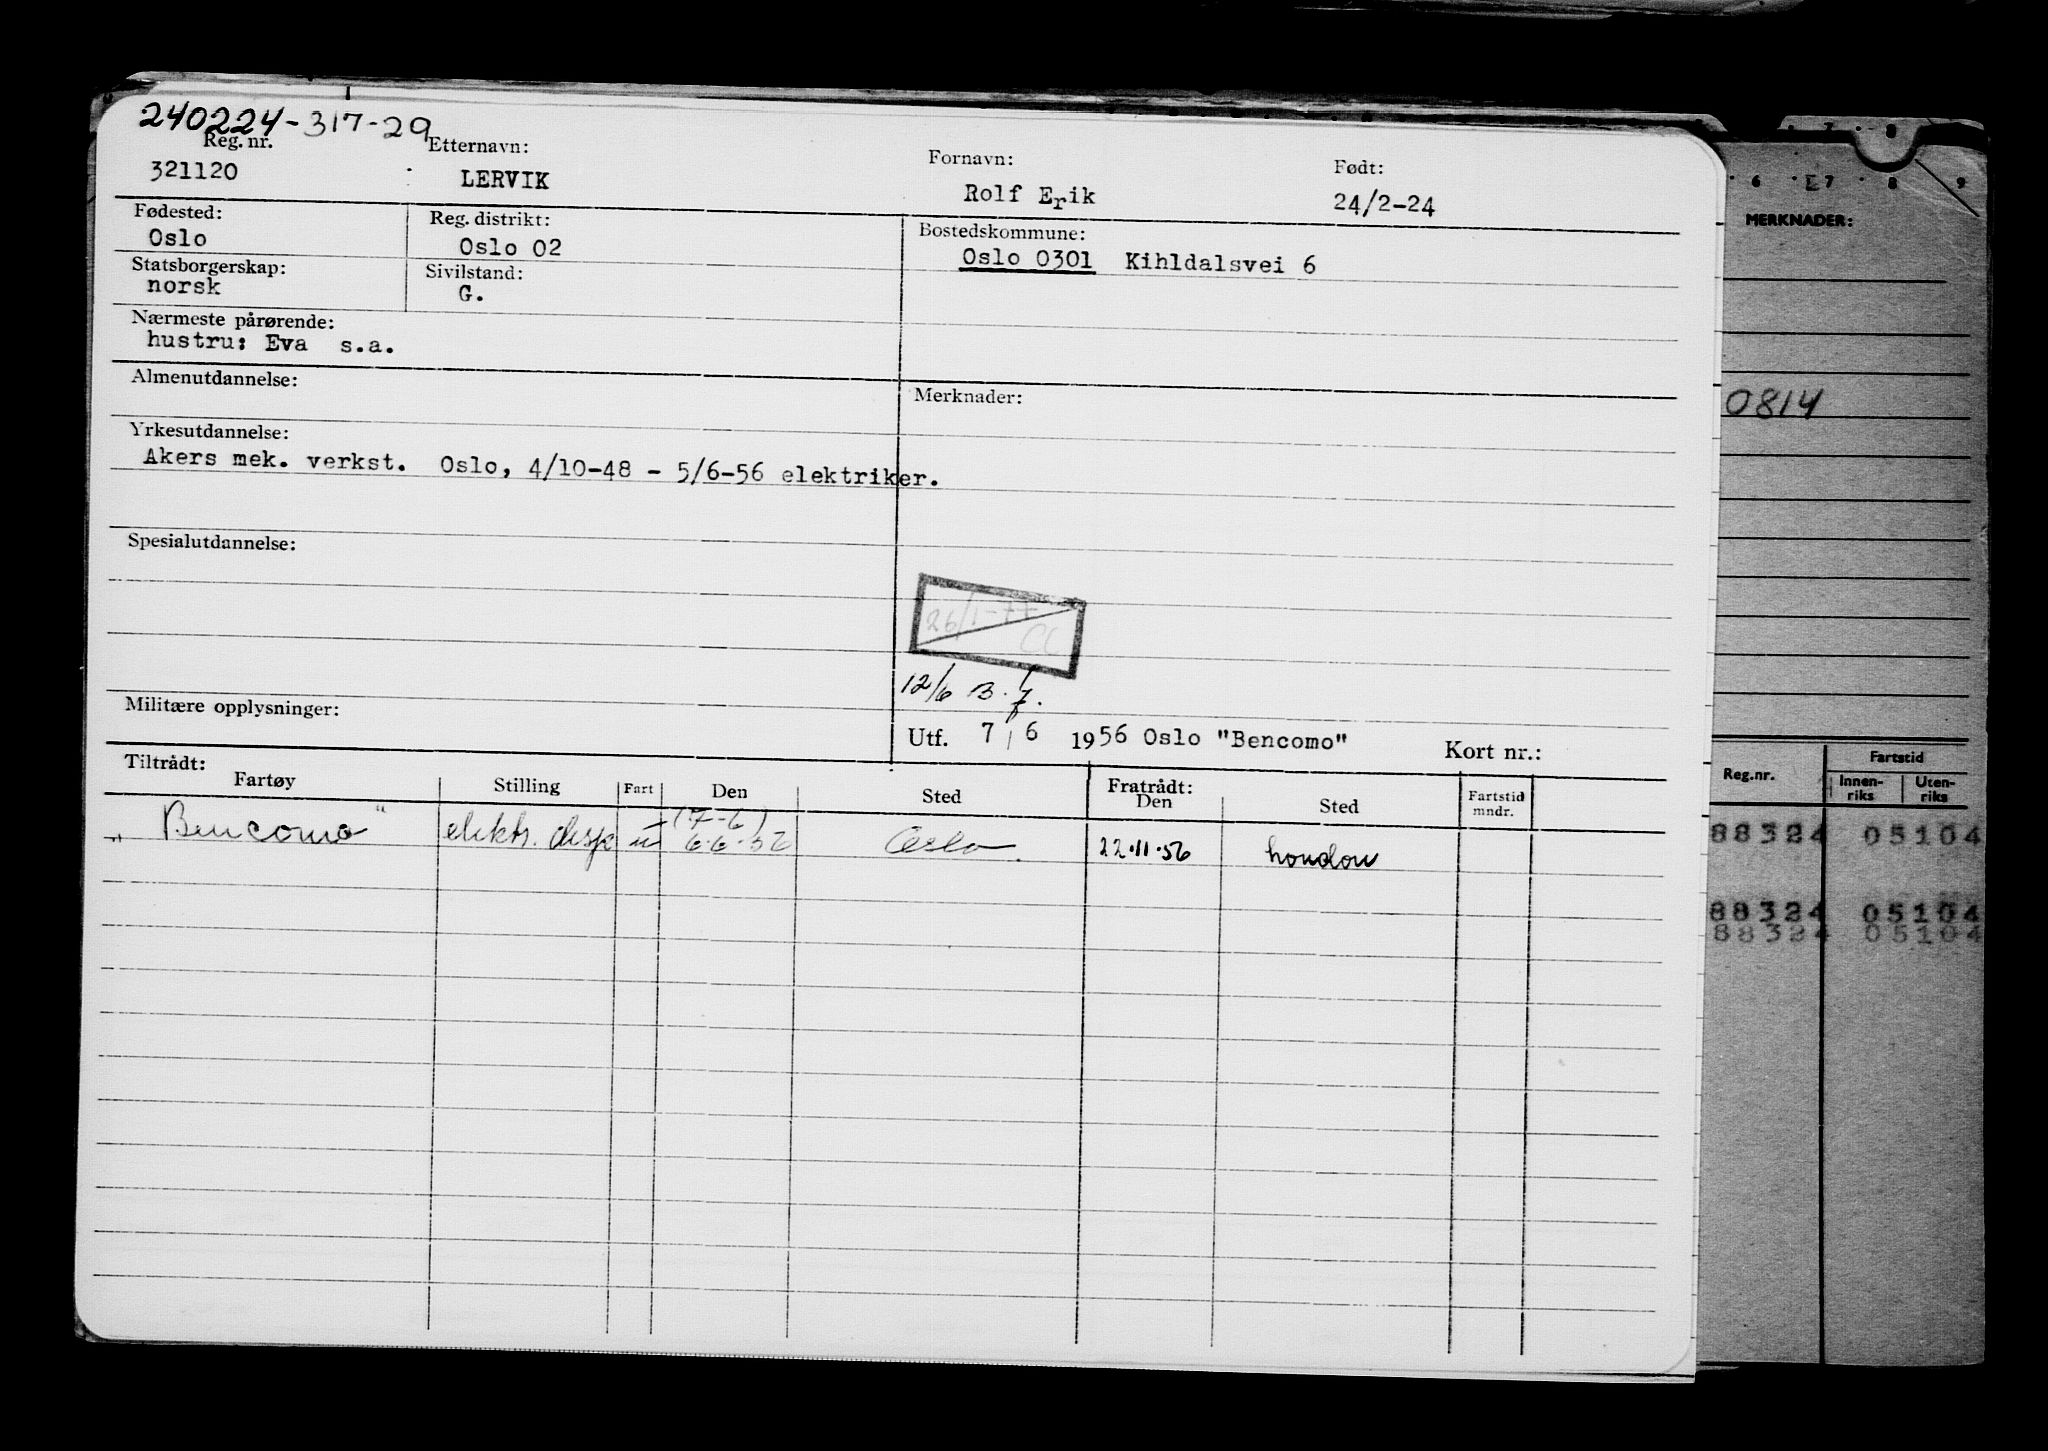 240224-317-29
Reg. nr. Etternavn: Fornavn: Født:
321120 LERVIK Rolf Erik 24/2-24
Fødested: Reg. distrikt: Bostedskommune:
Oslo Oslo 02 Oslo 0301 Kihldalsvei 6
Statsborgerskap: Sivilstand:
norsk G.
Nærmeste pårørende:
hustru: Eva s.a.
Almenutdannelse: Merknader:
Yrkesutdannelse:
Akers mek. verkst. Oslo, 4/10-48 - 5/6-56 elektriker.
Spesialutdannelse:
26/1-77
CC
12/6 B.
Militære opplysninger:
Utf. 7/6 1956 Oslo "Bencomo" Kort nr.:
Tiltrådt: Fratrådt:
Fartøy Stilling Fart Den Sted Den Sted Fartstid mndr.
(7-6)
"Bencomo" elektr. disp u 6.6.56 Oslo. 22.11.56 London
6 7 8 9
MERKNADER:
0814
Reg.nr. Fartstid
Innen-riks Uten-riks
88324 05104
88324 05104
88324 05104